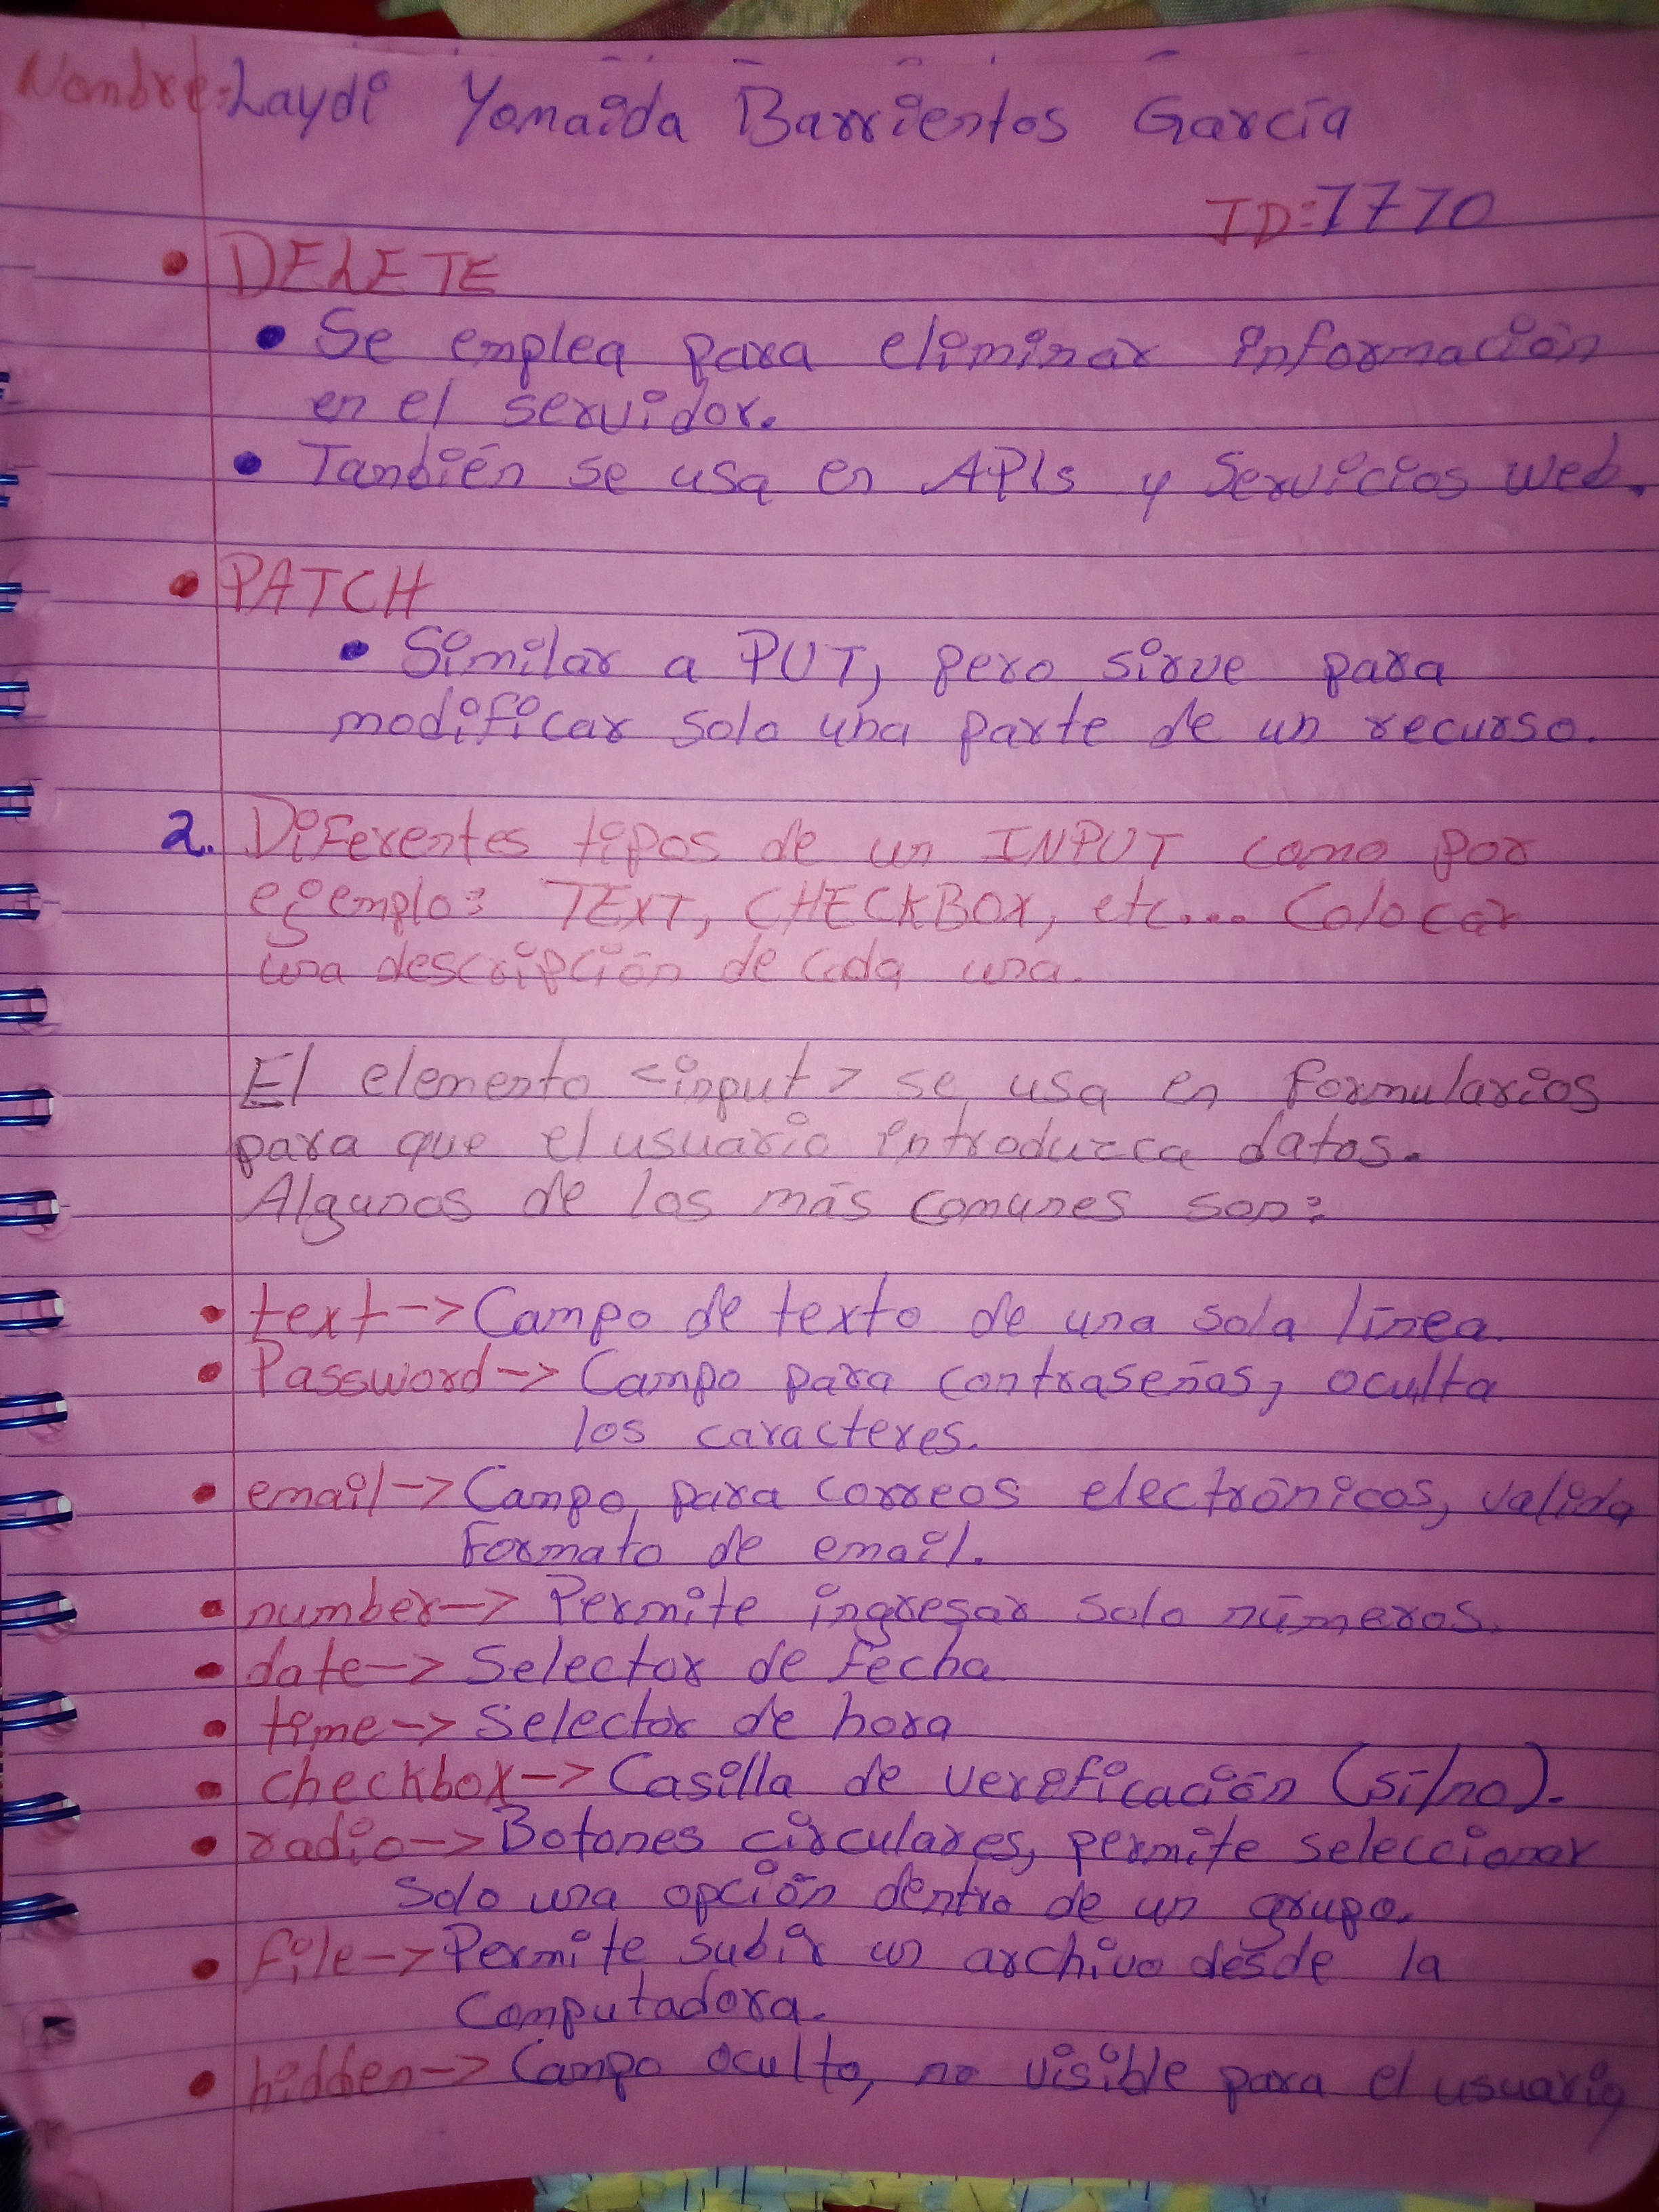 Nombre: Laydi Yomaida Barrientos García
ID: 7770
• DELETE
• Se emplea para eliminar información
en el servidor.
• También se usa en APIs y Servicios web.
• PATCH
• Similar a PUT, pero sirve para
modificar solo una parte de un recurso.
2. Diferentes tipos de un INPUT como por
ejemplo: TEXT, CHECKBOX, etc... Colocar
una descripción de cada una.
El elemento <input> se usa en formularios
para que el usuario introduzca datos.
Algunos de los más comunes son:
• text-> Campo de texto de una sola línea.
• Password-> Campo para contraseñas, oculta
los caracteres.
• email-> Campo para correos electrónicos, valida
Formato de email.
• number-> Permite ingresar solo números.
• date-> Selector de fecha
• time-> Selector de hora
• checkbox-> Casilla de verificación (sí/no).
• radio-> Botones circulares, permite seleccionar
solo una opción dentro de un grupo.
• file-> Permite subir un archivo desde la
Computadora.
• hidden-> Campo oculto, no visible para el usuario